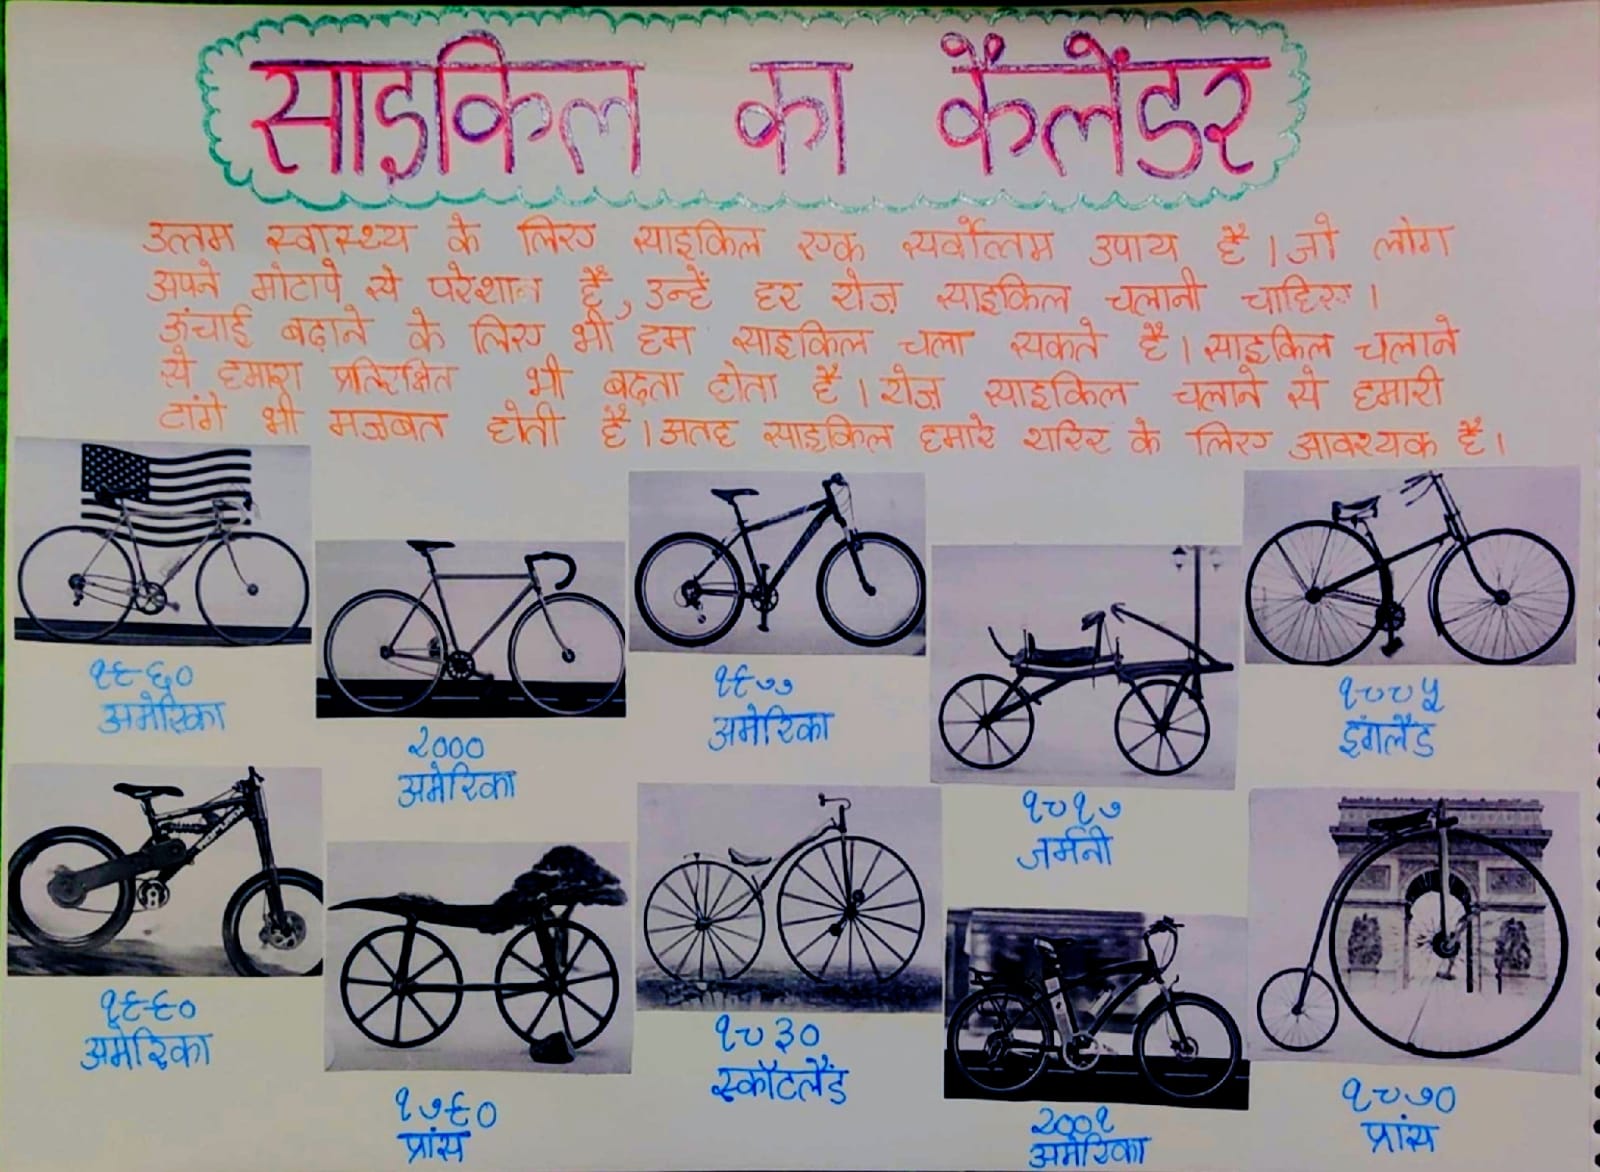 साइकिल का कैलेंडर
उत्तम स्वास्थ्य के लिए साइकिल एक सर्वोत्तम उपाय है। जो लोग
अपने मोटापे से परेशान हैं, उन्हें हर रोज़ साइकिल चलानी चाहिए।
ऊंचाई बढ़ाने के लिए भी हम साइकिल चला सकते है। साइकिल चलाने
से हमारा प्रतिरक्षित भी बढ़ता होता है। रोज़ साइकिल चलाने से हमारी
टांगे भी मजबत होती है। अतह साइकिल हमारे शरिर के लिए आवश्यक है।
१९६०
अमेरिका
२०००
अमेरिका
१९७७
अमेरिका
१८१७
जर्मनी
१८८५
इंगलैंड
१९९०
अमेरिका
१७९०
प्रांस
१८३०
स्कॉटलैंड
२००१
अमेरिका
१८७०
प्रांस